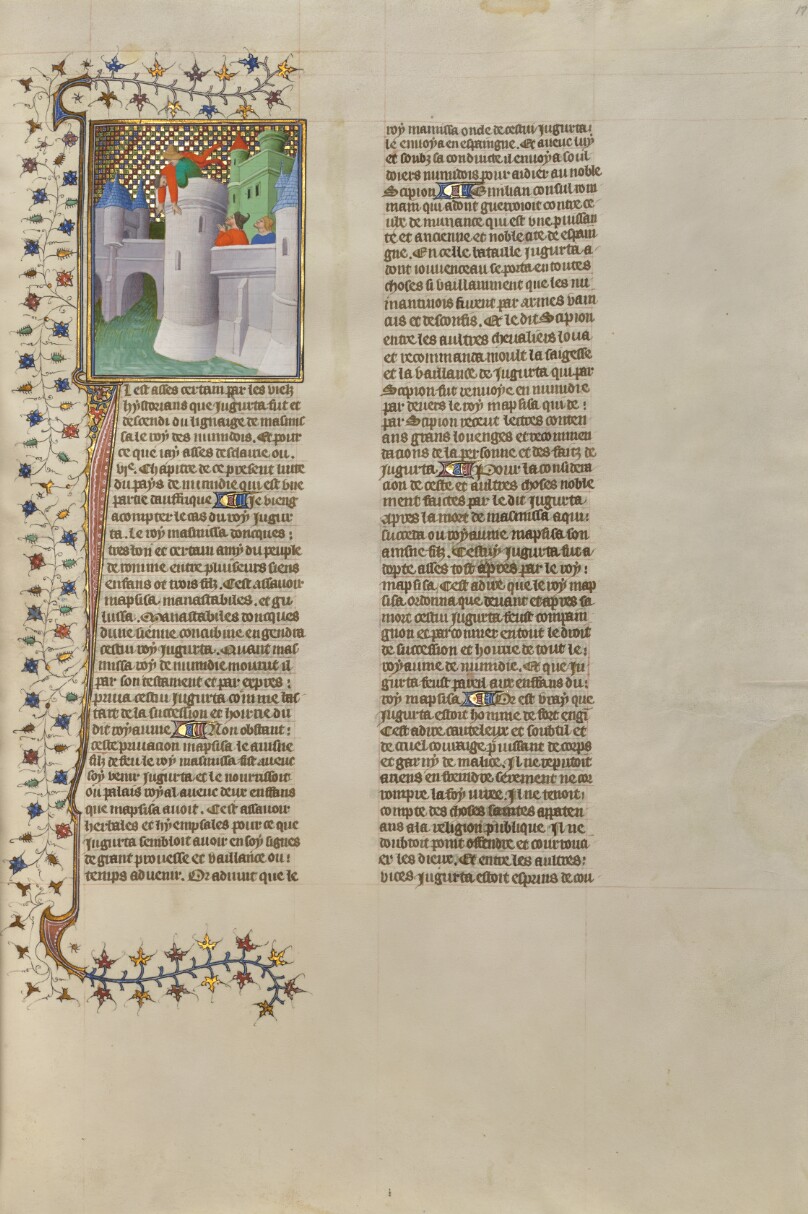 Il est asses certain par les vielz
hystorians que Jugurta fut et
descendi du lignaige de masinis
sa le roy des numidois. Et pour
ce que iay asses desclairie ou.
vje. Chapitre de ce present liure
du pays de numidie qui est vne
partie dauffrique Je vieng
a compter le cas du roy Jugur
ta. Le roy masinissa doncques :
tres bon et certain amy du peuple
de romme entre pluiseurs siens
enfans ot trois filz. Cest assauoir
mapsisa. manastabiles. et gu
lussa. Manastabiles doncques
dune sienne concubine engendra
cestui roy Jugurta. Quant mas
inissa roy de numidie mourut il
par son testament et par expres :
priua cestui Jugurta comme bas
tart de la succession et hoirrie du
dit royaume Non obstant :
ceste priuacion mapsisa le ainsne
filz de feu le roy masinissa fist auec
soy venir Jugurta et le nourrissoit
ou palais royal auecc deux enffans
que mapsisa auoit. Cest assauoir
hertales et hyempsales pour ce que
Jugurta sembloit auoir en soy signes
de grant prouesse et vaillance ou :
temps aduenir. Or aduint que le
roy manissa onde de cestui Jugurta :
le enuoya en espaigne. Et auecc luy
et soubz sa conduite il enuoya soul
doiers numidois pour aidier au noble
Scipion Emilian consul rom
main qui adont guerroioit contre ce
ulx de numance qui est vne puissan
te et ancienne et noble cite de espai
gne. En celle bataille Jugurta a
dont iouuenceau se porta en toutes
choses si vaillamment que les nu
mantinois furent par armes vain
cus et desconfis. Et le dit Scipion
entre les aultres cheualiers loua
et recommanda moult la saigesse
et la vaillance de Jugurta qui par
Scipion fut renuoye en numidie
par deuers le roy mapsisa qui de :
par Scipion receut lectres conten
ans grans louenges et recommen
dacions de la personne et des faitz de
Jugurta Pour la considera
cion de ceste et aultres choses noble
ment faictes par le dit Jugurta
apres la mort de masinissa a qui
succeda ou royaume mapsisa son
ainsne filz. Cestuy Jugurta fut a
dopte asses tost apres par le roy :
mapsisa. Cest a dire que le roy map
sisa ordonna que deuant et apres sa
mort cestui Jugurta feust compain
gnon et parconnier en tout le droit
de succession et hoirrie de tout le :
royaume de numidie. Et que Ju
gurta feust pareil aux enffans du :
roy mapsisa Or est vray que
Jugurta estoit homme de fort engi
Cest a dire cauteleux et soubtil et
de cruel couraige puissant de corps
et garny de malice. Il ne reputoit
a riens enfreindre serement ne cor
rompre la foy iuree. Il ne tenoit :
compte des choses saintes apaten
ans a la religion publique Il ne
doubtoit point offendre et courrouc
er les dieux. Et entre les aultres :
vices Jugurta estoit esprins de cou